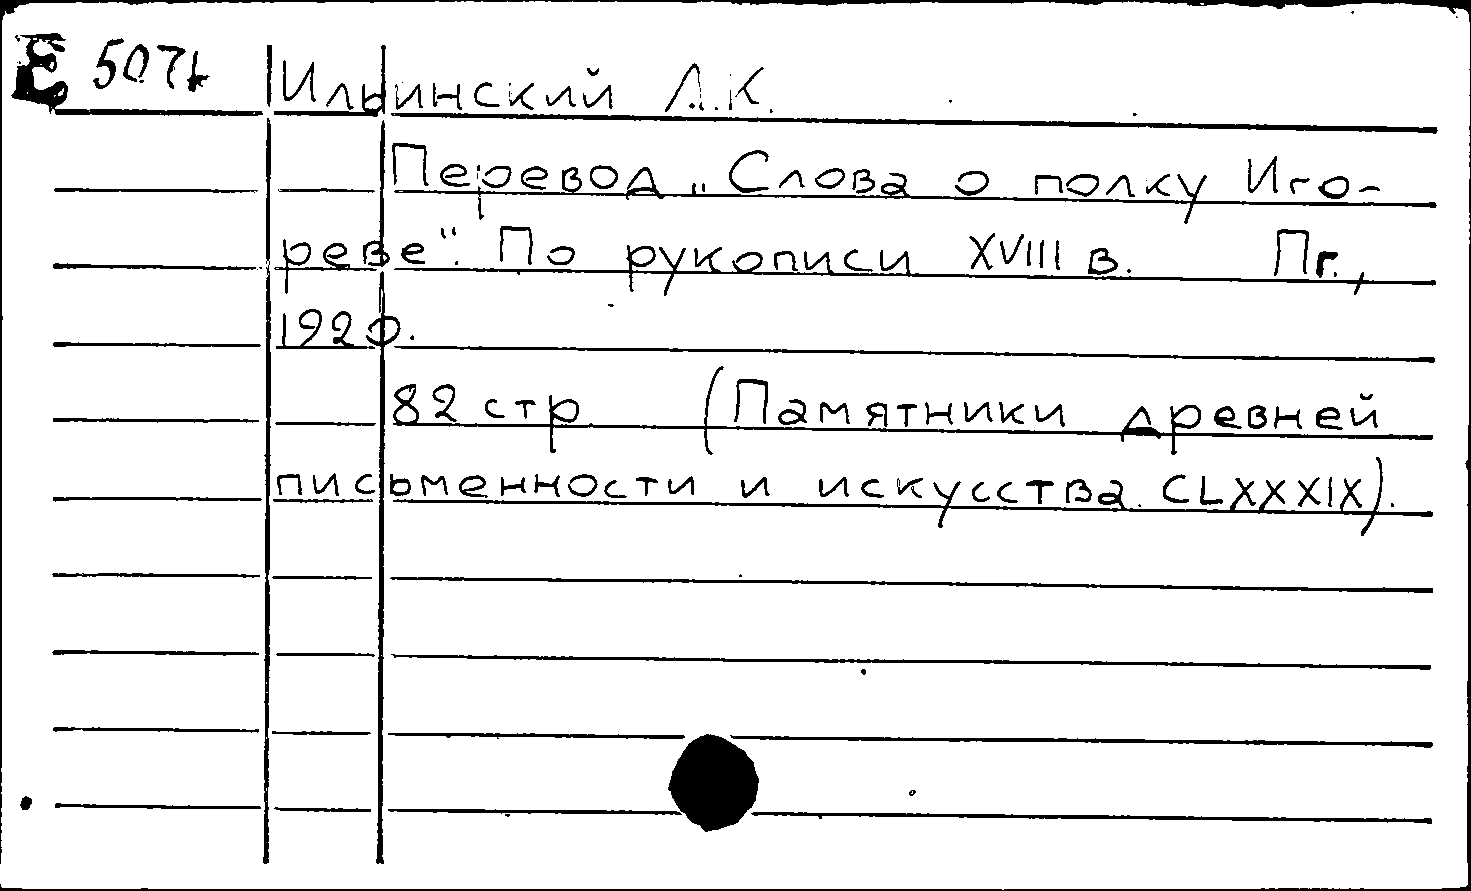 Е 507
Ильинский Л.К.
Перевод „Слова о полку Иго-
реве“. По рукописи XVIII в. Пг.,
1920.
82 стр (Памятники древней
письменности и искусства. CLXXXIX).